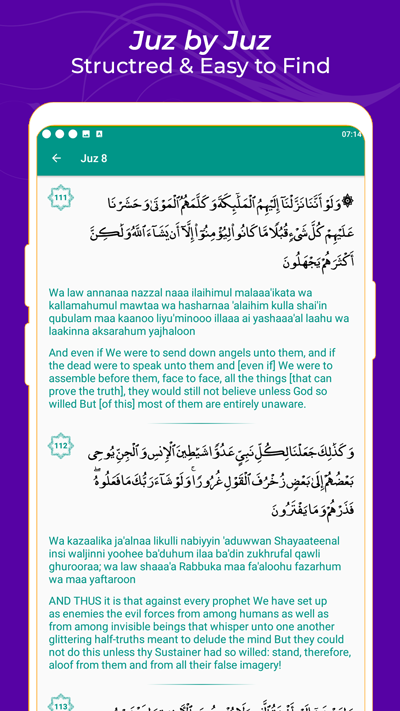 Juz by Juz
Structred & Easy to Find
07:14
Juz 8
111
۞ وَلَوْ أَنَّنَا نَزَّلْنَآ إِلَيْهِمُ ٱلْمَلَٰٓئِكَةَ وَكَلَّمَهُمُ ٱلْمَوْتَىٰ وَحَشَرْنَا
عَلَيْهِمْ كُلَّ شَىْءٍ قُبُلًا مَّا كَانُوا۟ لِيُؤْمِنُوٓا۟ إِلَّآ أَن يَشَآءَ ٱللَّهُ وَلَٰكِنَّ
أَكْثَرَهُمْ يَجْهَلُونَ
Wa law annanaa nazzal naaa ilaihimul malaaa'ikata wa
kallamahumul mawtaa wa hasharnaa 'alaihim kulla shai'in
qubulam maa kaanoo liyu'minooo illaaa ai yashaaa'al laahu wa
laakinna aksarahum yajhaloon
And even if We were to send down angels unto them, and if
the dead were to speak unto them and [even if] We were to
assemble before them, face to face, all the things [that can
prove the truth], they would still not believe unless God so
willed But [of this] most of them are entirely unaware.
112
وَكَذَٰلِكَ جَعَلْنَا لِكُلِّ نَبِىٍّ عَدُوًّا شَيَٰطِينَ ٱلْإِنسِ وَٱلْجِنِّ يُوحِى
بَعْضُهُمْ إِلَىٰ بَعْضٍ زُخْرُفَ ٱلْقَوْلِ غُرُورًا ۚ وَلَوْ شَآءَ رَبُّكَ مَا فَعَلُوهُ ۖ
فَذَرْهُمْ وَمَا يَفْتَرُونَ
Wa kazaalika ja'alnaa likulli nabiyyin 'aduwwan Shayaateenal
insi waljinni yoohee ba'duhum ilaa ba'din zukhrufal qawli
ghurooraa; wa law shaaa'a Rabbuka maa fa'aloohu fazarhum
wa maa yaftaroon
AND THUS it is that against every prophet We have set up
as enemies the evil forces from among humans as well as
from among invisible beings that whisper unto one another
glittering half-truths meant to delude the mind But they could
not do this unless thy Sustainer had so willed: stand, therefore,
aloof from them and from all their false imagery!
113